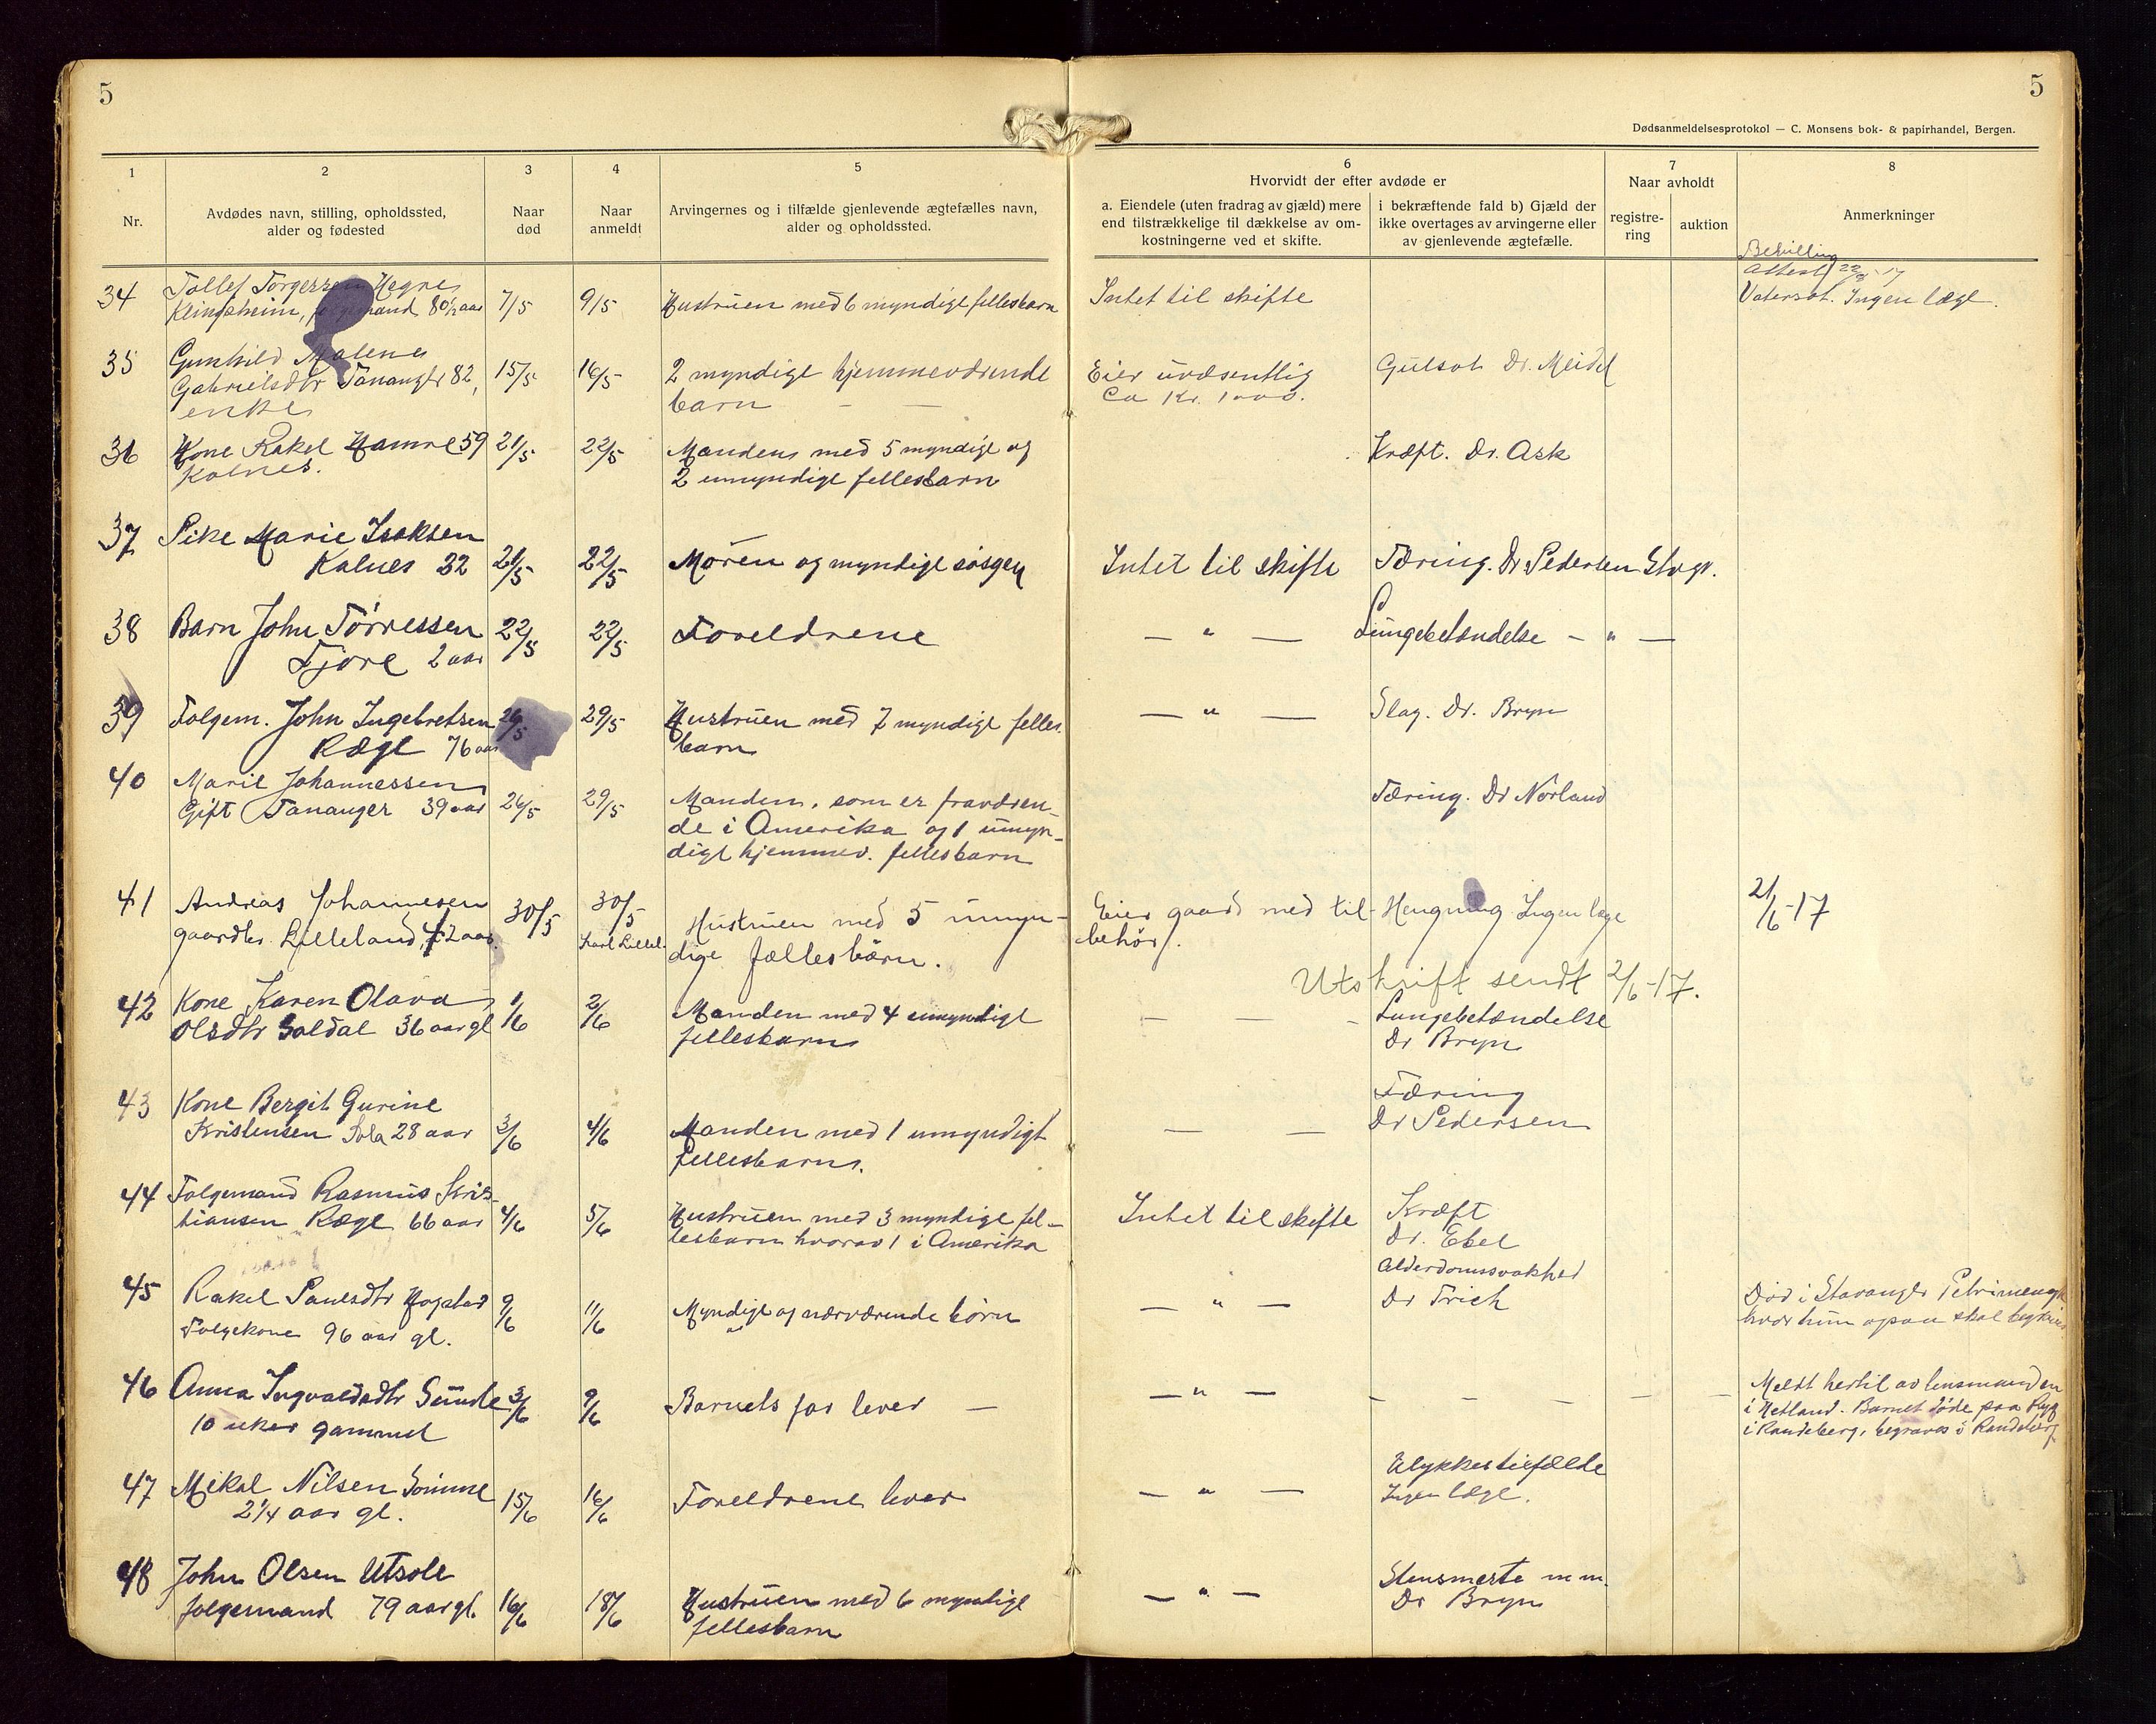 5
5
Dødsanmeldelsesprotokol — C. Monsens bok- & papirhandel, Bergen.
1
Nr.
2
Avdødes navn, stilling, opholdssted,
alder og fødested
3
Naar
død
4
Naar
anmeldt
5
Arvingernes og i tilfælde gjenlevende ægtefælles navn,
alder og opholdssted.
6
Hvorvidt der efter avdøde er
a. Eiendele (uten fradrag av gjæld) mere
end tilstrækkelige til dækkelse av om-
kostningerne ved et skifte.
i bekræftende fald b) Gjæld der
ikke overtages av arvingerne eller
av gjenlevende ægtefælle.
7
Naar avholdt
registre-
ring
auktion
8
Anmerkninger
34 Tollef Torgersen Hegre
Klingsheim, 80½ aar 7/5 9/5 Hustruen med 6 myndige fellesbarn Intet til skifte
Bevilling
Attest 22/5-17
Vatersot. Ingen læge.
35 Gunhild Malene
Gabrielsdtr Tananger 82, 15/5 16/5 2 myndige hjemmeværende Eier uvæsentlig Gulsot Dr. Meidel
enke barn — — Ca Kr. 1000.
36 Kone Rakel Hamre 59 21/5 22/5 Manden med 5 myndige og Kræft. Dr. Ask
Kolnes. 2 umyndige fellesbarn
37 Pike Marie Isaksen
Kalnes 32 21/5 22/5 Moren og myndige søsgen Intet til skifte Tæring. Dr Pedersen Stvgr.
38 Barn John Tørressen 22/5 22/5 Foreldrene — " — Lungebetændelse — " —
Tjore 2 aar
39 Folgem. John Ingebretsen 26/5 29/5 Hustruen med 7 myndige felles- — " — Slag. Dr. Bryn
Ræge 76 aar barn
40 Marie Johannessen
Gift Tananger 39 aar 26/5 29/5 Manden, som er fraværen- Tæring. Dr Nörland
de i Amerika og 1 umyn-
digt hjemmev. fellesbarn
41 Andreas Johannesen 30/5 30/5 Hustruen med 5 umyn- Eier gaard med til- Hengning Ingen læge 2/6-17
gaardbr. Lilleland, 42 aar. Karl Lillel. dige fællesbørn. behør.
Utskrift sendt 2/6-17.
42 Kone Karen Olava 1/6 2/6 Manden med 4 umyndige — — — Lungebetændelse
Olsdtr Soldal 36 aar gl fellesbarn Dr Bryn
43 Kone Bergit Gurine Tæring
Kristensen Sola 28 aar 3/6 4/6 Manden med 1 umyndigt — — Dr Pedersen
fellesbarn.
44 Folgemand Rasmus Kris- Kræft
tiansen Ræge 66 aar 4/6 5/6 Hustruen med 3 myndige fel- Intet til skifte Dr. Ebel
lesbarn hvorav 1 i Amerika
45 Rakel Paulsdtr Hogstad 9/6 11/6 Myndige og nærværende børn — " — Alderdomssvakhed
Folgekone 96 aar gl. Dr Frich
Død i Stavanger Petrimengh
hvor hun ogsaa skal begraves
46 Anna Ingvaldsdtr Sunde 3/6 9/6 Barnets far lever — — " — — — — — —
10 uker gammel
Meldt hertil av lensmanden
i Hetland. Barnet døde paa Ryg
i Randeberg, begraves i Randeberg
47 Mikal Nilsen Sømme 15/6 16/6 Foreldrene lever — " — Ulykkestilfælde
2¼ aar gl. Ingen læge.
48 John Olsen Utsole
folgemand 79 aar gl. 16/6 18/6 Hustruen med 6 myndige — " — Stensmerte m m.
fellesbarn Dr Bryn